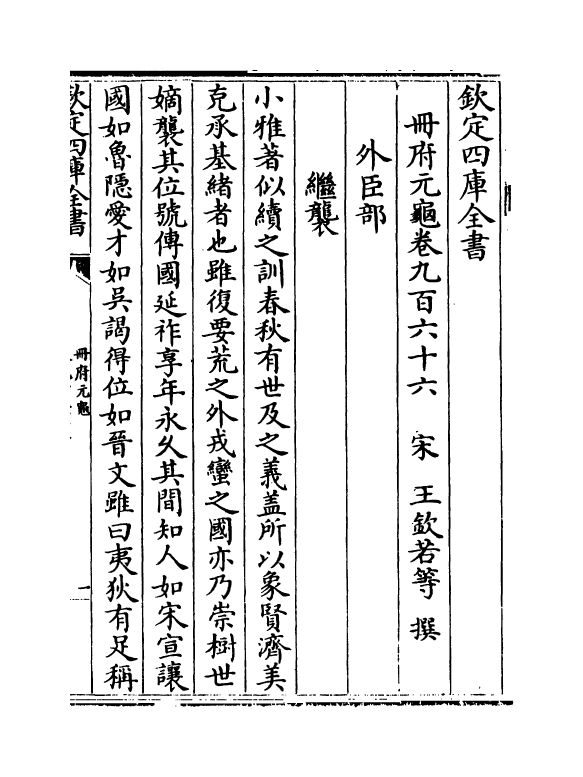 欽定四庫全書
冊府元龜卷九百六十六　宋　王欽若等　撰
外臣部
繼襲
小雅著似續之訓春秋有世及之義蓋所以象賢濟美
克承基緒者也雖復要荒之外戎蠻之國亦乃崇樹世
嫡襲其位號傳國延祚享年永久其間知人如宋宣讓
國如魯隱愛才如吳謁得位如晉文雖曰夷狄有足稱
欽定四庫全書
冊府元龜
一